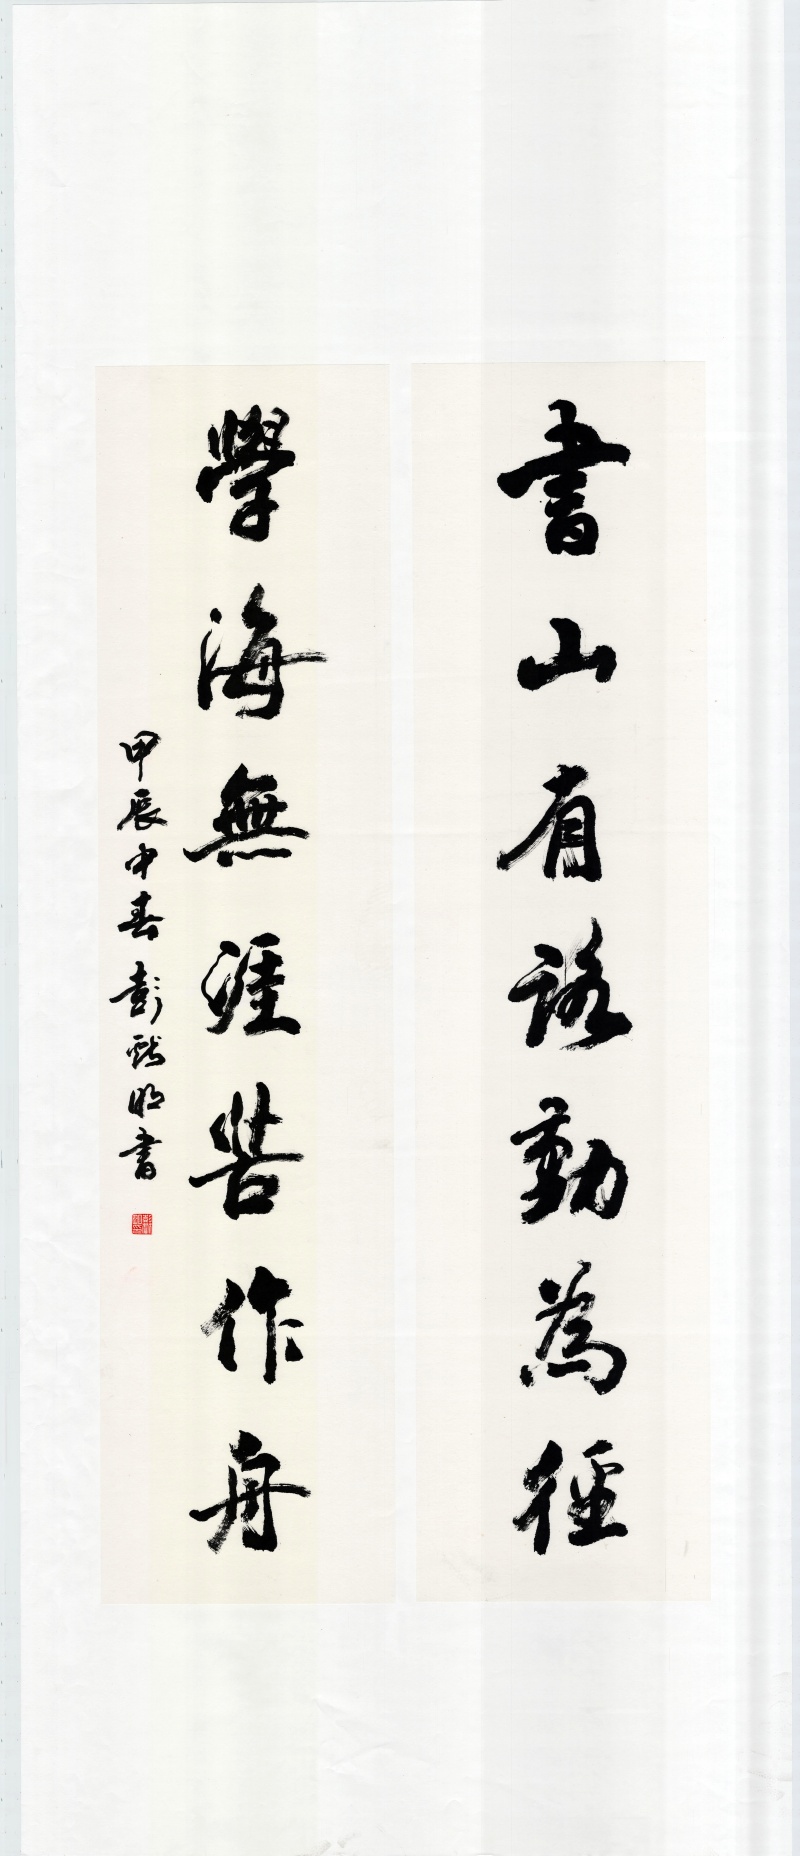 書山有路勤為徑
學海無涯苦作舟
甲辰中春彭
明書